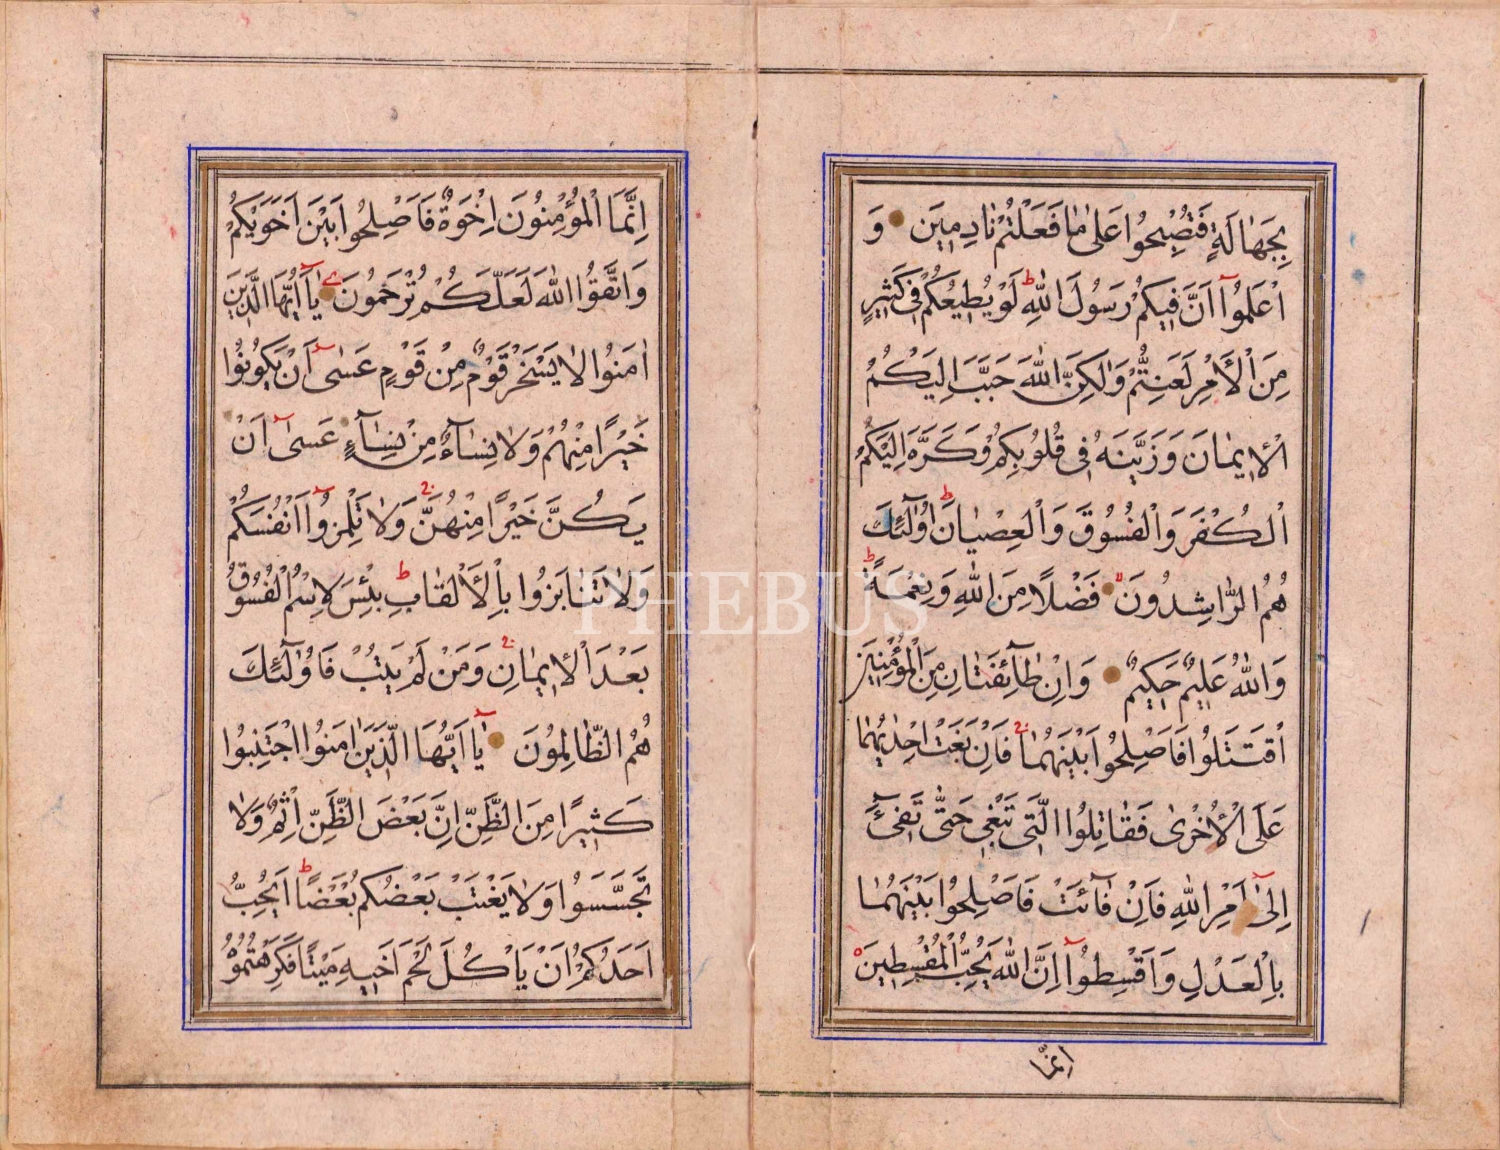 بِجَهَالَةٍ فَتُصْبِحُوا عَلىٰ مٰا فَعَلْتُمْ نٰادِمِينَ وَ
اعْلَمُوآ اَنَّ فِيكُمْ رَسُولَ اللّٰهِ ط لَوْ يُطِيعُكُمْ فِى كَثِيرٍ
مِنَ اْلأَمْرِ لَعَنِتُّمْ وَلٰكِنَّ اللّٰهَ حَبَّبَ اِلَيْكُمُ
اْلاِيمٰانَ وَزَيَّنَهُ فِى قُلُوبِكُمْ وَكَرَّهَ اِلَيْكُمُ
اْلكُفْرَ وَاْلفُسُوقَ وَاْلعِصْيٰانَ ط اُولٰٓئِكَ
هُمُ الرّٰاشِدُونَ فَضْلاً مِنَ اللّٰهِ وَنِعْمَةً ط
وَاللّٰهُ عَلِيمٌ حَكِيمٌ وَاِنْ طٰآئِفَتٰانِ مِنَ اْلمُؤْمِنِينَ
اقْتَتَلُوا فَاَصْلِحُوا بَيْنَهُمٰا فَاِنْ بَغَتْ اِحْدٰيهُمٰا
عَلَى اْلأُخْرىٰ فَقٰاتِلُوا الَّتِى تَبْغِى حَتّٰى تَفِىٓءَ
اِلىٰٓ اَمْرِ اللّٰهِ فَاِنْ فٰآئَتْ فَاَصْلِحُوا بَيْنَهُمٰا
بِاْلعَدْلِ وَاَقْسِطُوآ اِنَّ اللّٰهَ يُحِبُّ اْلمُقْسِطِينَ
انما
اِنَّمَا اْلمُؤْمِنُونَ اِخْوَةٌ فَاَصْلِحُوا بَيْنَ اَخَوَيْكُمْ
وَاتَّقُوا اللّٰهَ لَعَلَّكُمْ تُرْحَمُونَ يٰآ اَيُّهَا الَّذِينَ
اٰمَنُوا لاٰ يَسْخَرْ قَوْمٌ مِنْ قَوْمٍ عَسٰىٓ اَنْ يَكُونُوا
خَيْرًا مِنْهُمْ وَلاٰ نِسٰآءٌ مِنْ نِسٰآءٍ عَسىٰٓ اَنْ
يَكُنَّ خَيْرًا مِنْهُنَّ وَلاٰ تَلْمِزُوآ اَنْفُسَكُمْ
وَلاٰ تَنٰابَزُوا بِاْلأَلْقٰابِ ط بِئْسَ لاِسْمُ اْلفُسُوقُ
بَعْدَ اْلاِيمٰانِ وَمَنْ لَمْ يَتُبْ فَاُولٰٓئِكَ
هُمُ الظّٰالِمُونَ يٰآ اَيُّهَا الَّذِينَ اٰمَنُوا اجْتَنِبُوا
كَثِيرًا مِنَ الظَّنِّ اِنَّ بَعْضَ الظَّنِّ اِثْمٌ وَلاٰ
تَجَسَّسُوا وَلاٰ يَغْتَبْ بَعْضُكُمْ بَعْضًا ط اَيُحِبُّ
اَحَدُكُمْ اَنْ يَاْكُلَ لَحْمَ اَخِيهِ مَيْتًا فَكَرِهْتُمُوْهُ
PHEBUS